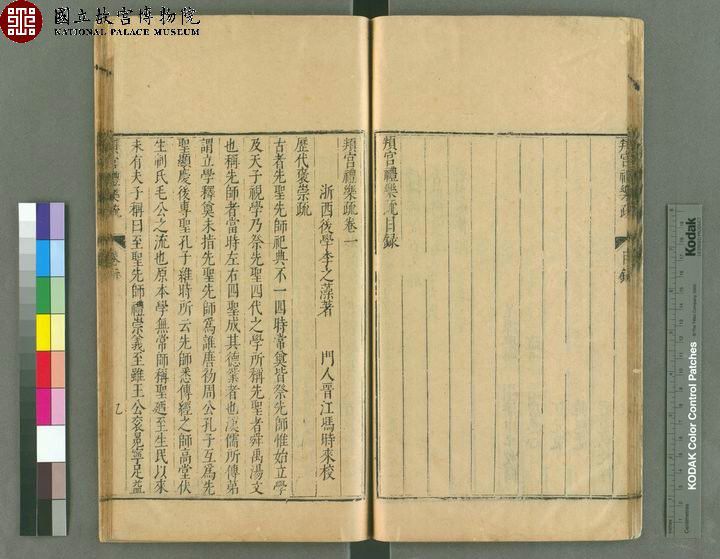 國立故宮博物院
NATIONAL PALACE MUSEUM
頖宮禮樂疏 目錄
頖宮禮樂疏目錄
頖宮禮樂疏卷一
浙西後學李之藻著 門人晉江馮時來校
歷代褒崇疏
古者先聖先師祀典不一四時常奠皆祭先師惟始立學
及天子視學乃祭先聖四代之學所稱先聖者舜禹湯文
也稱先師者當時左右四聖成其德業者也漢儒所傳弟
謂立學釋奠未指先聖先師為誰唐初周公孔子互為先
聖顯慶後專聖孔子維時所云先師悉傳經之師高堂伏
生制氏毛公之流也原本學無常師稱聖廼至生民以來
未有夫子稱曰至聖先師禮崇義至雖王公袞冕寧足益
頖宮禮樂疏
KODAK Color Control Patches
Kodak